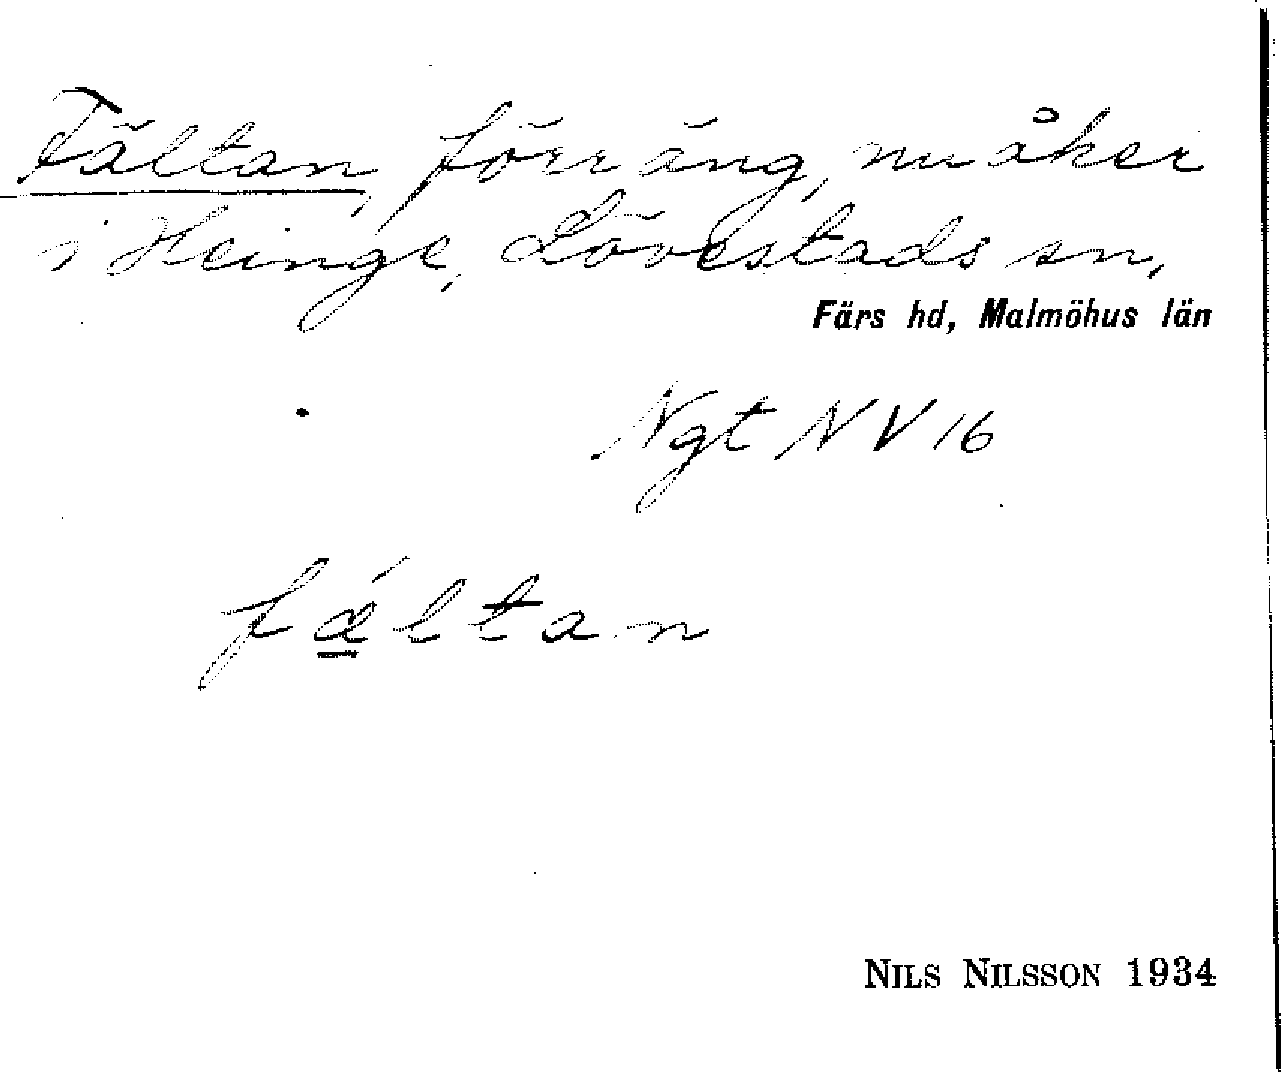 Fältan, förr äng, nu åker
i Heinge, Lövestads sn,
Färs hd, Malmöhus län
Ngt NV 16
fǽltan
NILS NILSSON 1934